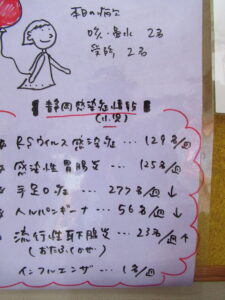 本日の病欠
咳・鼻水 2名
受診 2名
静岡感染症情報
(小児)
RSウイルス感染症 … 129名/週
感染性胃腸炎 … 125名/週
手足口病 … 277名/週 ↓
ヘルパンギーナ … 56名/週 ↓
流行性耳下腺炎 … 23名/週 ↑
(おたふくかぜ)
インフルエンザ … 1名/週